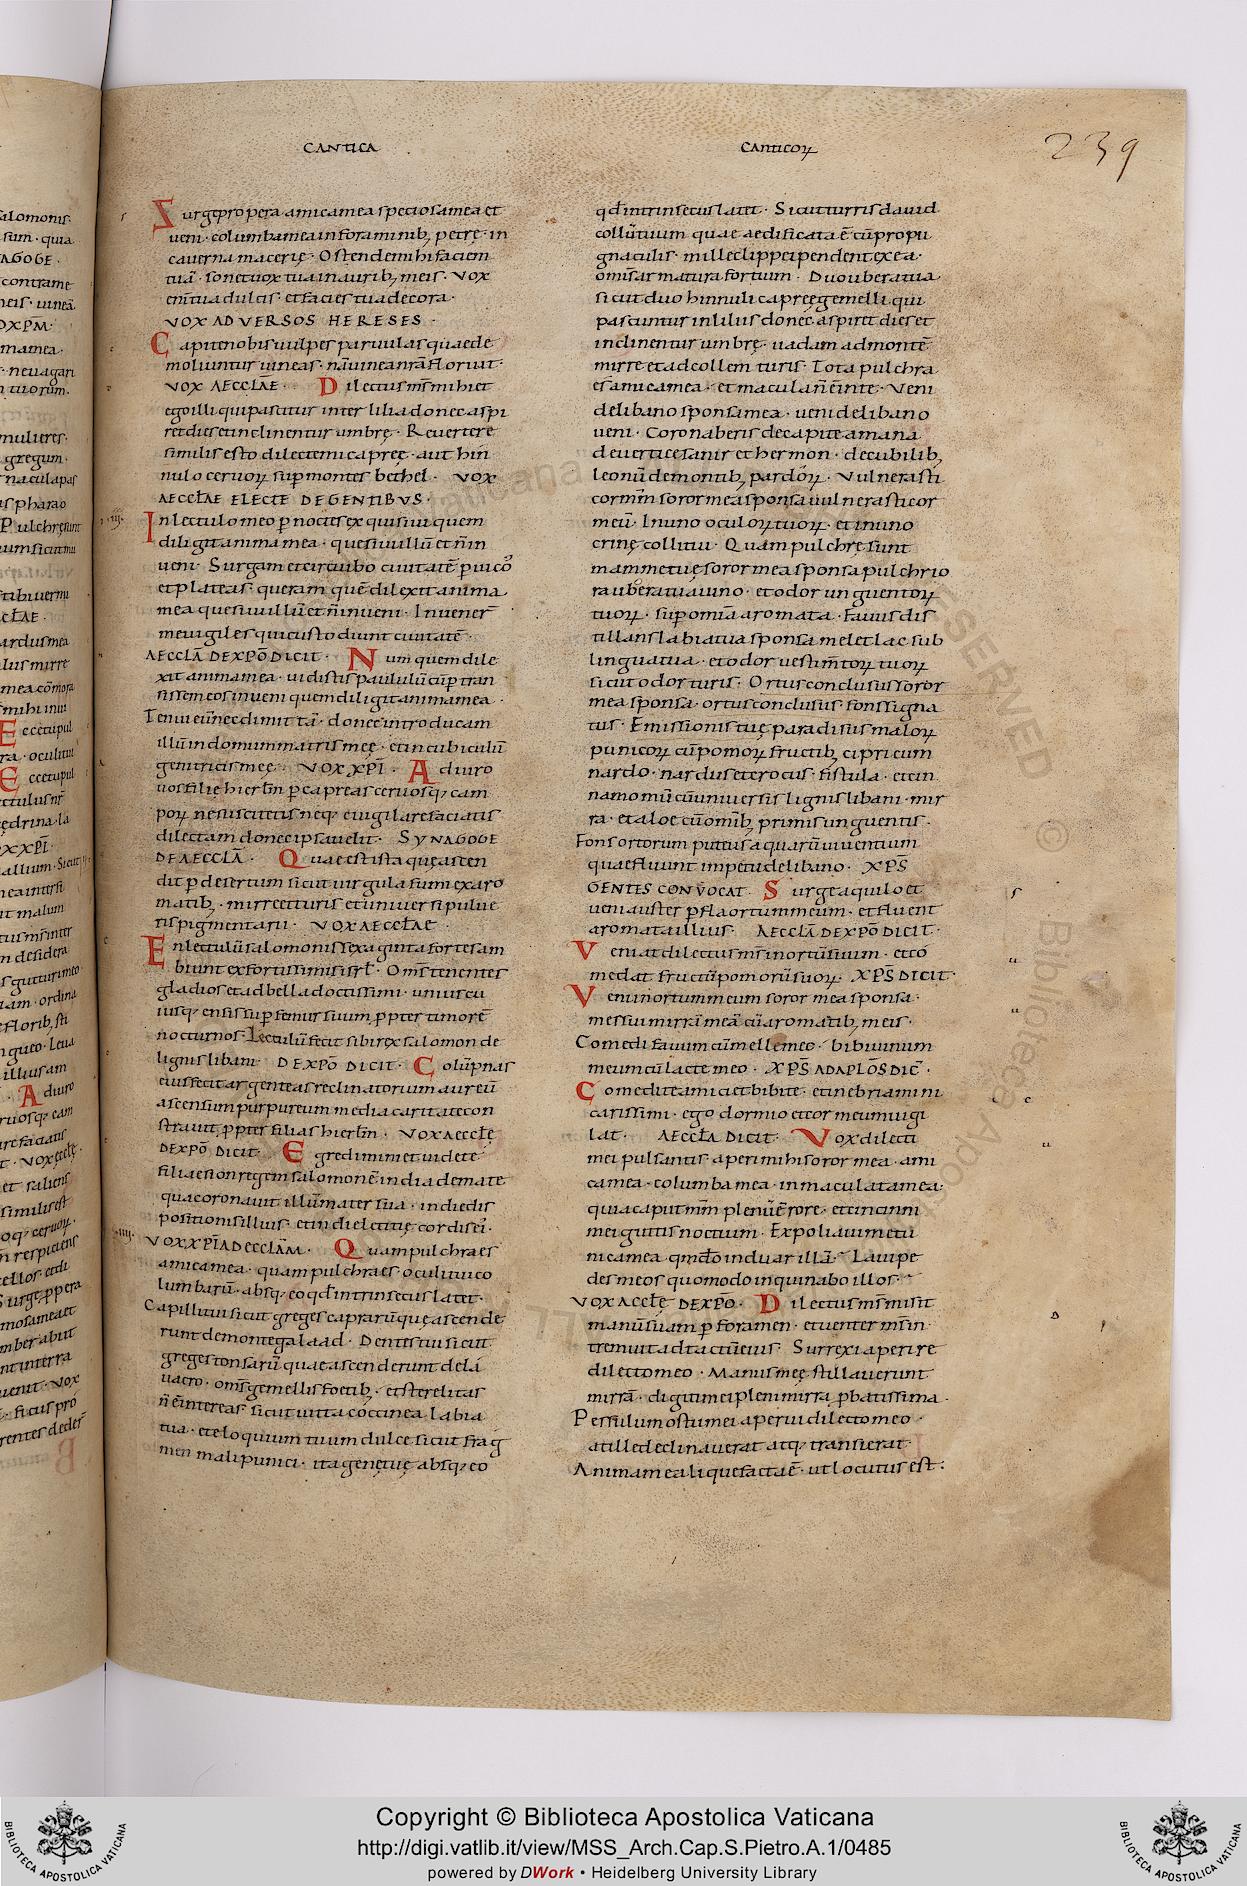 CANTICA
CANTICOꝜ
239
Surge propera amica mea speciosa mea et
ueni · columba mea in foraminib; petrę · in
cauerna macerię · Ostende mihi faciem
tuā · sonet uox tua in aurib; meis · Vox
enī tua dulcis · et facies tua decora ·
VOX ADVERSOS HERESES ·
Capite nobis uulpes paruulas quae de
moliuntur uineas · nā uinea nrā floruit ·
VOX AECCLAE · Dilectus ms̄ mihi et
ego illi qui pascitur inter lilia donec aspi
ret dies et inclinentur umbrę · Reuertere
similis esto dilecte mi capreę · aut hin
nulo ceruoꝝ sup montes bethel · VOX
AECCLAE ELECTE DE GENTIBVS ·
In lectulo meo p noctes exquisiui quem
diligit anima mea · quesiui illū et ñ in
ueni · Surgam et circuibo ciuitatē p uico
et plateas · queram quē dilexit anima
mea quesiui illū et ñ inueni · Inuener̄
me uigiles qui custodiunt ciuitatē ·
AECCLĀ DE XPŌ DICIT · Num quem dile
xit anima mea · uidistis paululū cū p tran
sissem eos inueni quem diligit anima mea ·
Tenui eū nec dimittā · donec introducam
illū in domum matris meę · et in cubiculū
genitricis meę · VOX XPĪ · Adiuro
uos filię hierl̄m p capreas ceruosq; cam
poꝝ ne suscitetis neq; euigilare faciatis
dilectam donec ipsa uelit · SYNAGOGE
DE AECCLĀ · Quae est ista quę ascen
dit p desertum sicut uirgula fumi ex aro
matib; · mirre et turis et uniuersi pulue
ris pigmentarii · VOX AECCLAE ·
En lectulū salomonis sexaginta fortes am
biunt ex fortissimis isrl̄ · Om̄s tenentes
gladios et ad bella doctissimi · uniuscu
iusq; ensis sup femur suum ppter timorē
nocturnos · Lectulū fecit sibi rex salomon de
lignis libani · DE XPŌ DICIT · Colūpnas
eius fecit argenteas reclinatorium aureū
ascensum purpureum media caritate con
strauit ppter filias hierl̄m · VOX AECCLĘ
DE XPŌ DICIT · Egredimini et uidete
filiae sion regem salomonē in diademate
quae coronauit illū mater sua · in die dis
positionis illius · et in die lętitię cordis ei ·
VOX XPĪ AD ECCLAM · Quam pulchra es
amica mea · quam pulchra es oculi tui co
lumbarū · absq; eo qd̄ intrinsecus latet ·
Capilli tui sicut greges caprarū quę ascende
runt de monte galaad · Dentes tui sicut
greges tonsarū quae ascenderunt de la
uacro · om̄s gemellis foetib; · et sterelitas
ñ ē inter eas · sicut uitta coccinea labia
tua · et eloquium tuum dulce sicut frag
men mali punici · ita genę tuę absq; eo
qd̄ intrinsecus latet · Sicut turris dauid
collū tuum quae aedificata ē cū propu
gnaculis · mille clippei pendent ex ea ·
om̄s armatura fortium · Duo ubera tua
sicut duo hinnuli capreę gemelli qui
pascuntur in liliis donec aspiret dies et
inclinentur umbrę · uadam ad montē
mirre et ad collem turis · Tota pulchra
es amica mea · et macula ñ ē in te · Veni
de libano sponsa mea · ueni de libano
ueni · Coronaberis de capite amana
de uertice sanir et hermon · de cubilib;
leonū de montib; pardoꝝ · Vulnerasti
cor mm̄ soror mea sponsa uulnerasti cor
meū · In uno oculoꝝ tuoꝝ · et in uno
crine colli tui · Quam pulchrę sunt
mammę tuę soror mea sponsa pulchrio
ra ubera tua uino · et odor unguentoꝝ
tuoꝝ · sup omīa aromata · Fauus dis
tillans labia tua sponsa mel et lac sub
lingua tua · et odor uestim̄toꝝ tuoꝝ
sicut odor turis · Ortus conclusus soror
mea sponsa · ortus conclusus fons signa
tus · Emissionis tuę paradisus maloꝝ
punicoꝝ cū pomoꝝ fructib; cipri cum
nardo · nardus et crocus · fistula · et cin
namomū cū uniuersis lignis libani · mir
ra · et aloe cū omīb; primis unguentis ·
Fons ortorum puteus aquarū uiuentium
quae fluunt impetu de libano · XPS̄
GENTES CONVOCAT · Surge aquilo et
ueni auster pfla ortum meum · et fluent
aromata illius · AECCLĀ DE XPŌ DICIT ·
Veniat dilectus ms̄ in ortū suum · et co
medat fructū pomorū suoꝝ · XPS̄ DICIT ·
Veni in ortum meum soror mea sponsa ·
messui mirrā meā cū aromatib; meis ·
Comedi fauum cū melle meo · bibi uinum
meum cū lacte meo · XPS̄ AD APLŌS DIC̄ ·
Comedite amici et bibite · et inebriamini
carissimi · ego dormio et cor meum uigi
lat · AECCLĀ DICIT · Vox dilecti
mei pulsantis aperi mihi soror mea · ami
ca mea · columba mea · inmaculata mea ·
quia caput mm̄ plenū ē rore · et cincinni
mei guttis noctium · Expoliaui me tu
nica mea · qmdo induar illā · Laui pe
des meos quomodo inquinabo illos ·
VOX AECCLĘ DE XPO · Dilectus ms̄ misit
manū suam p foramen · et uenter ms̄ in
tremuit ad tactū eius · Surrexi aperire
dilecto meo · Manus meę stillauerunt
mirrā · digiti mei pleni mirra pbatissima ·
Pessulum ostii mei aperui dilecto meo ·
at ille declinauerat atq; transierat ·
Anima mea liquefacta ē · ut locutus est :
Copyright © Biblioteca Apostolica Vaticana
http://digi.vatlib.it/view/MSS_Arch.Cap.S.Pietro.A.1/0485
powered by DWork • Heidelberg University Library